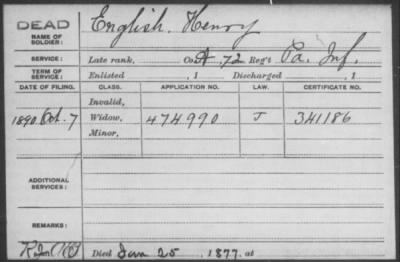 DEAD
NAME OF SOLDIER: English, Henry
SERVICE: Late rank, Co. A, 72 Reg't Pa. Inf.
TERM OF SERVICE: Enlisted , 1 Discharged , 1
DATE OF FILING. CLASS. APPLICATION NO. LAW. CERTIFICATE NO.
Invalid,
1890 Oct. 7 Widow, 474990 J 341186
Minor,
ADDITIONAL SERVICES:
REMARKS:
Died Jan 25, 1877, at